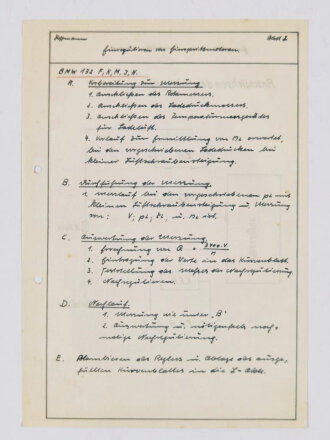 Hoffmann Blatt 2
Einregulieren von Einspritzmotoren.
BMW 132 F, K, M, J, N.
A. Vorbereitung zur Messung
1. Anschließen des Rotamessers.
2. Anschließen des Ladedruckmessers.
3. Anschließen des Temperaturmessgerätes
für Ladeluft.
4. Vorlauf zur Ermittlung von
bei den vorgeschriebenen Ladedrücken bei
kleiner Luftschraubensteigung.
B. Durchführung der Messung.
1. bei den vorgeschriebenen pL mit
kleinen Luftschraubensteigung u. Messung
von: V; pL; tL u.
C. Auswertung der Messung.
1. Errechnung von Q =
2. Eintragung der Werte in das Kurvenblatt.
3. Feststellung des Maßes der Nachregulierung.
4. Nachregulieren.
D. Nachlauf.
1. Messung wie unter "B"
2. Auswertung u. nötigenfalls noch-
malige Nachregulierung.
E. Plombieren des Reglers u. Ablage des ausge-
füllten Kurvenblattes in die L-Akte.